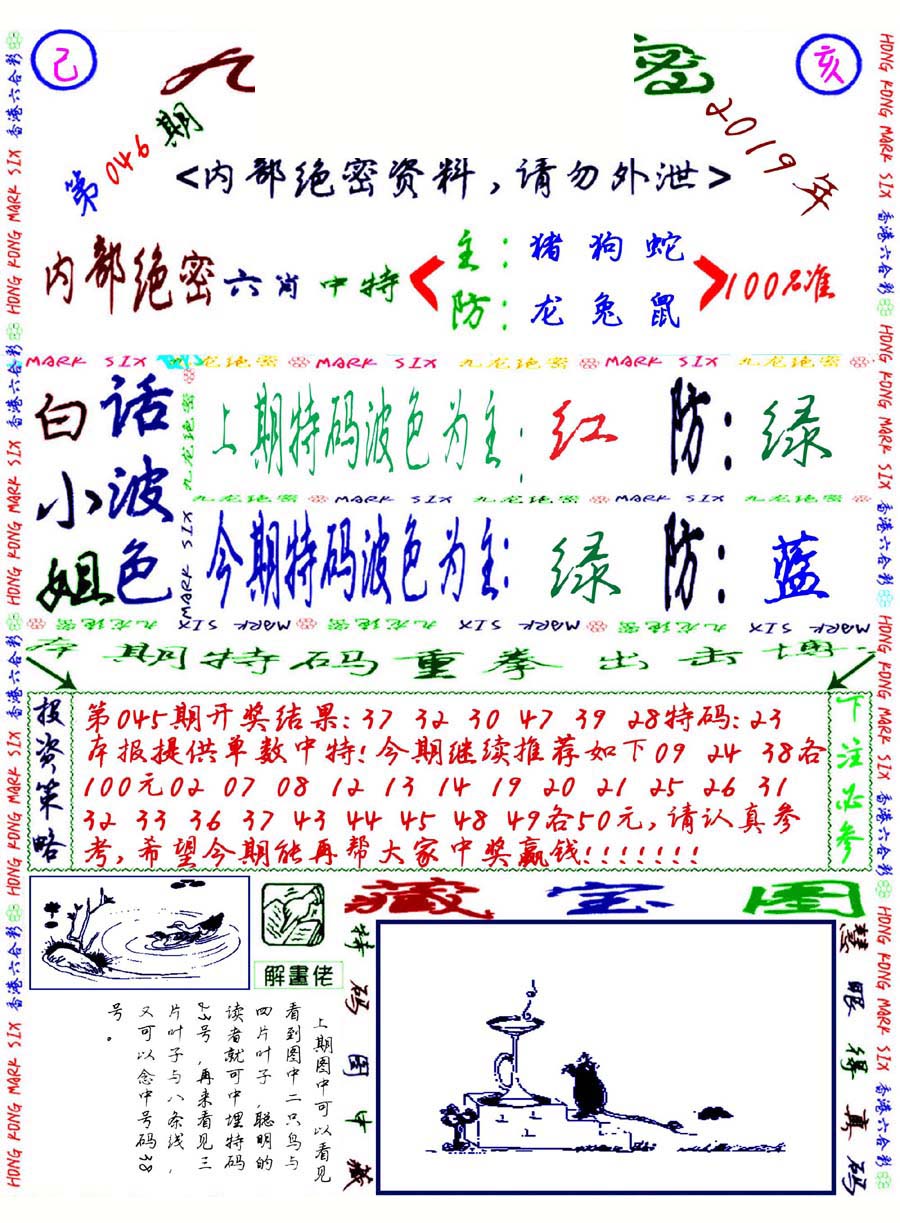 己
九
密
亥
第046期
2019年
<内部绝密资料,请勿外泄>
内部绝密六肖中特
主:猪狗蛇
防:龙兔鼠
100%准
MARK SIX 九龙绝密 MARK SIX 九龙绝密 MARK SIX 九龙绝密
白小姐
话波色
上期特码波色为主:红 防:绿
九龙绝密 MARK SIX 九龙绝密 MARK SIX 九龙绝密
今期特码波色为主:绿 防:蓝
九龙绝密
MARK SIX
九龙绝密 MARK SIX 九龙绝密 MARK SIX 九龙绝密 MARK SIX
本期特码重拳出击博
投资策略
第045期开奖结果:37 32 30 47 39 28特码:23
本报提供单数中特!今期继续推荐如下09 24 38各
100元02 07 08 12 13 14 19 20 21 25 26 31
32 33 36 37 43 44 45 48 49各50元,请认真参
考,希望今期能再帮大家中奖赢钱!!!!!!!
下注必参
解畫佬
藏宝图
上期图中可以看见
看到图中二只鸟与
四片叶子,聪明的
读者就可中埋特码
23号,再来看见三
片叶子与八条线,
又可以念中号码38
号。
特码图中藏
慧眼得真码
HONG KONG MARK SIX 香港六合彩 HONG KONG MARK SIX 香港六合彩 HONG KONG MARK SIX 香港六合彩 HONG KONG MARK SIX 香港六合彩
HONG KONG MARK SIX 香港六合彩 HONG KONG MARK SIX 香港六合彩 HONG KONG MARK SIX 香港六合彩 HONG KONG MARK SIX 香港六合彩